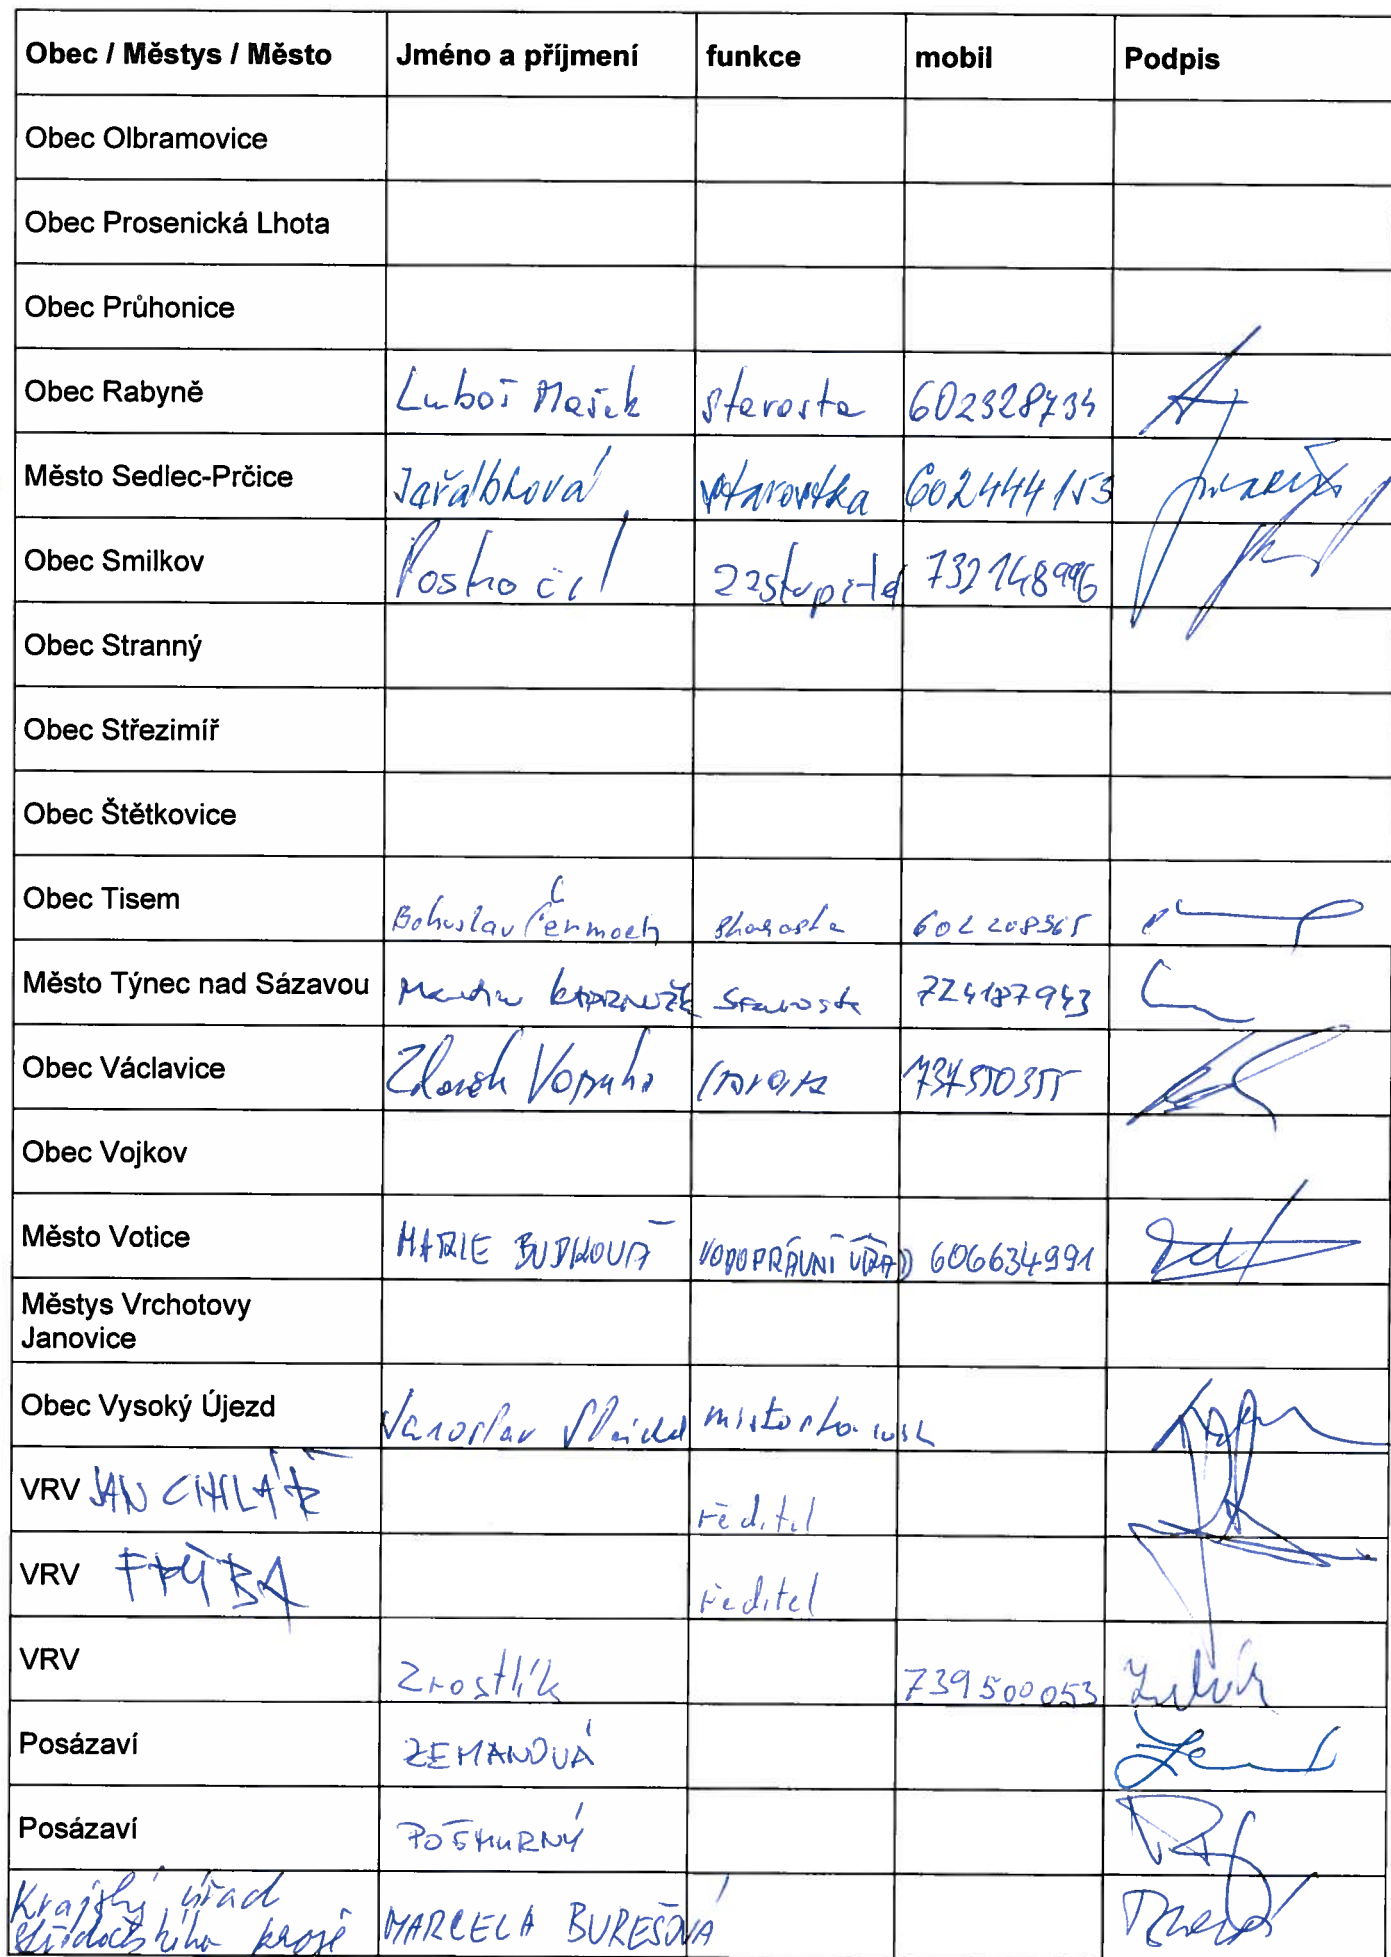 Obec / Městys / Město Jméno a příjmení funkce mobil Podpis
Obec Olbramovice
Obec Prosenická Lhota
Obec Průhonice
Obec Rabyně Luboš Mašek starosta 602328734
Město Sedlec-Prčice Jařabková starostka 602444153
Obec Smilkov Poskočil zastupitel 732148996
Obec Stranný
Obec Střezimíř
Obec Štětkovice
Obec Tisem Bohuslav Čermoch starosta 602208365
Město Týnec nad Sázavou Martin starosta 724187943
Obec Václavice Zdeněk 737550355
Obec Vojkov
Město Votice MARIE BUDKOVÁ VODOPRÁVNÍ ÚŘAD 606634991
Městys Vrchotovy
Janovice
Obec Vysoký Újezd Jaroslav místostarosta
VRV JAN CIHLÁŘ ředitel
VRV FRÝBA ředitel
VRV Zrostlík 739500053
Posázaví ZEMANOVÁ
Posázaví POŠMURNÝ
Krajský úřad
Středočeského kraje MARCELA BUREŠOVÁ